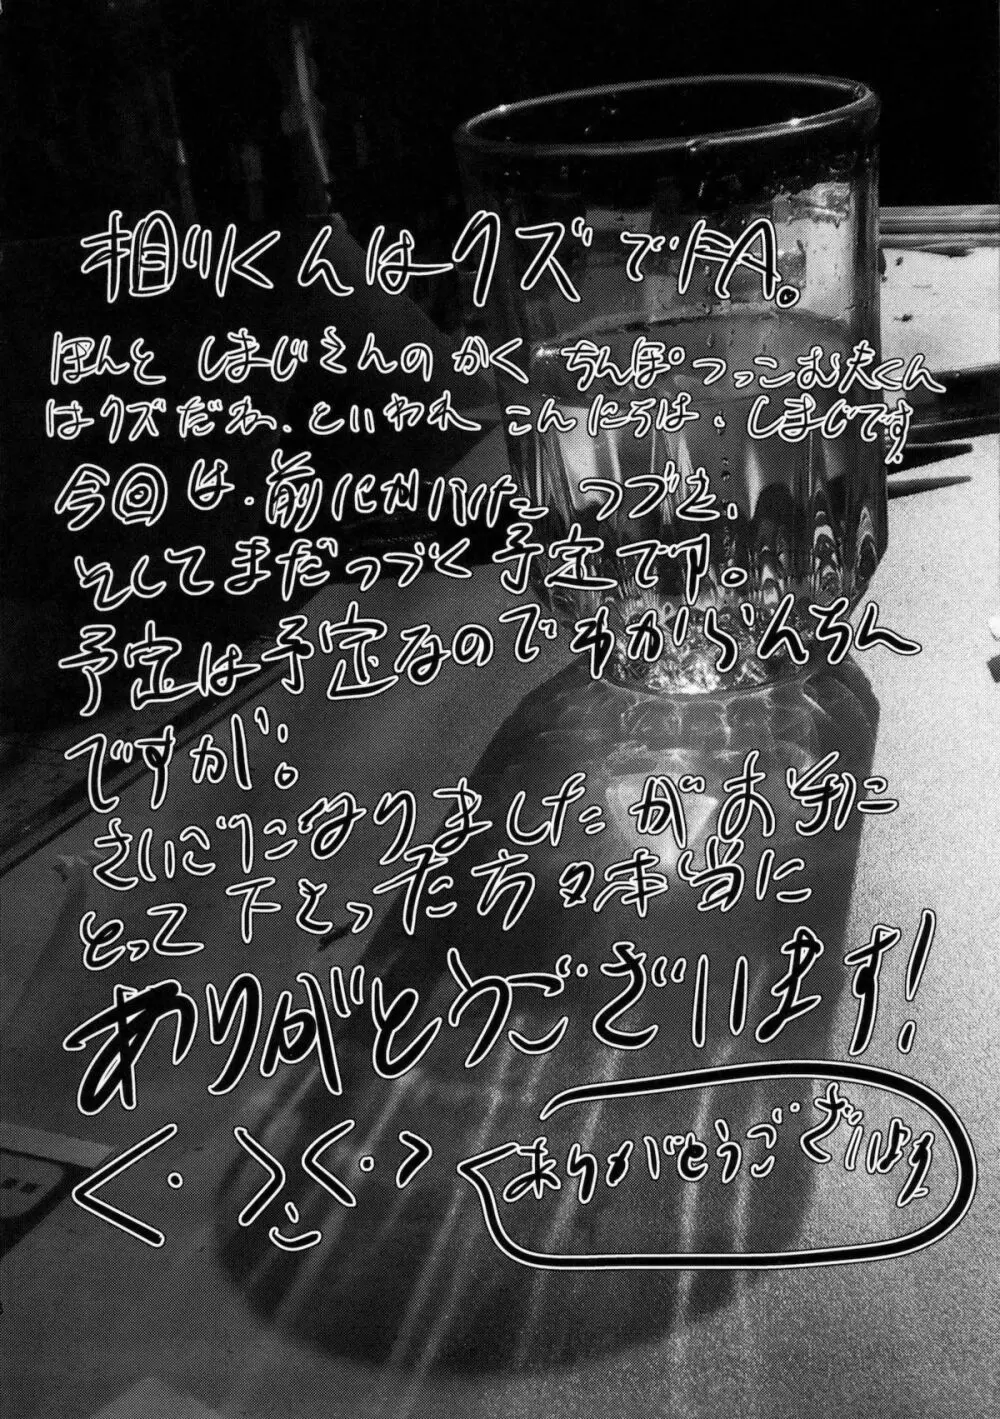 相川くんはクズでFA。
ほんと しまじさんのかく ちんぽつっこむ夫くん
はクズだね、といわれ こんにちは、しまじです。
今回は、前にかいた つづき、
そしてまだつづく予定です。
予定は予定なのでわからんちん
ですが。
さいごになりましたがお手に
とって下さった方々本当に
ありがとうございます!
ありがとうございます